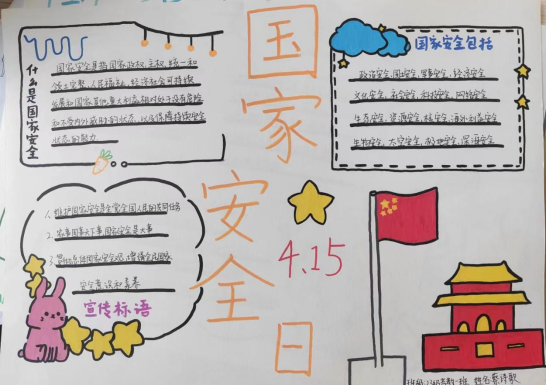 什么是国家安全
国家安全是指国家政权、主权、统一和
领土完整、人民福祉、经济社会可持续
发展和国家其他重大利益相对处于没有危险
和不受内外威胁的状态，以及保障持续安全
状态的能力
国家安全日
4.15
国家安全包括
政治安全、国土安全、军事安全、经济安全
文化安全、社会安全、科技安全、网络安全
生态安全、资源安全、核安全、海外利益安全
生物安全、太空安全、极地安全、深海安全
1、维护国家安全是全党全国人民的共同任务
2、家事国事天下事国家安全是大事
3、国家安全
全意识和素养
宣传标语
班级